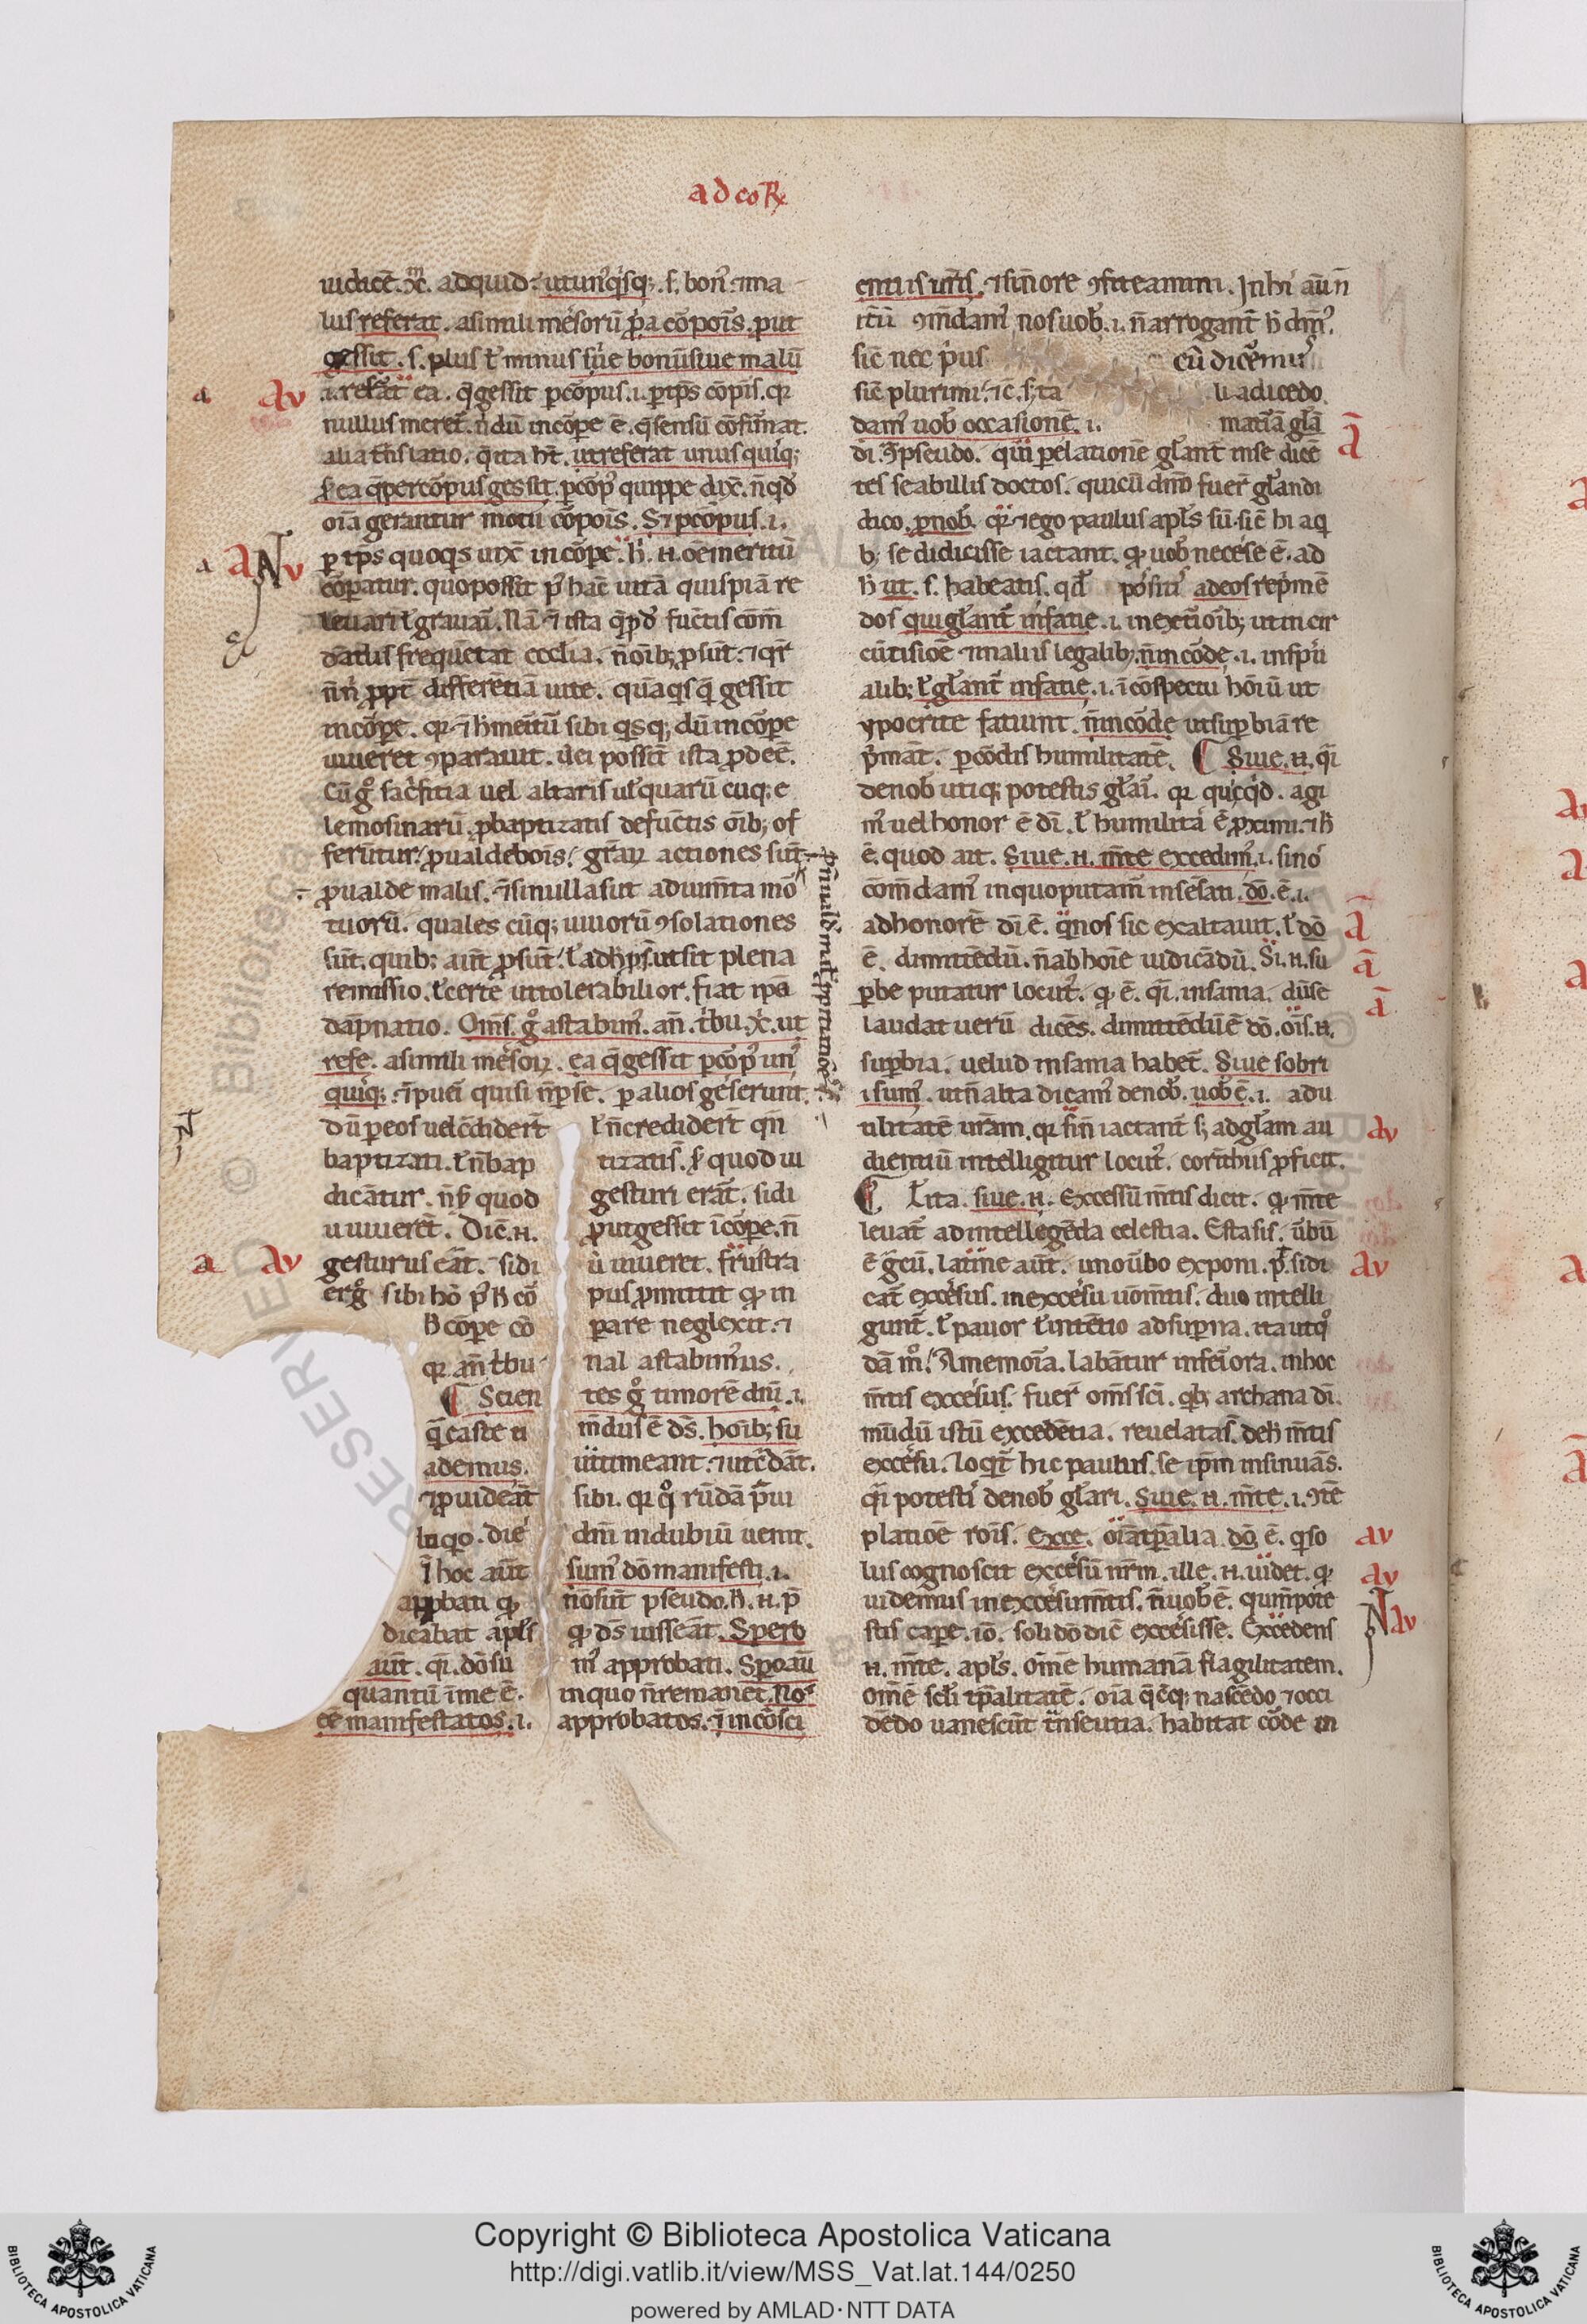 ad coR
uidicē. xc̄. ad quid. ut unꝰq̄sq; .s. bonꝰ. ⁊ ma
lus referat. a simili mēsorū ꝓp̄a cōpoīs. put
gessit. s. plus ł minus siue bonū siue malū
.i. referāt ea. q̄ gessit p cōpus .i. p tp̄s cōpis. qr
nullus meret. n̄ dū in cōpe ē. q̄ sensū cōfirmat.
alia tn̄slatio. q̄ ita ht̄. ut referat unus quiq;
s; ea q̄ per cōpus gessit. p cōpꝰ quippe dix̄. n̄ qđ
oīa gerantur motu cōpois. S; p cōpus .i.
p tp̄s quoq̄s uix̄ in cōpe. h̄. n. oē meritū
cōparatur. quo possit pꝰ hāc uitā quispiā re
leuari ł grauari. Nā ⁊ ista q̄ ꝓ đfūctis cōm̄
dādis frequētat ecclīa. n̄ oīb; ꝓsūt. ⁊ qr̄
n̄n̄ ꝓpt̄ differētiā uite. quā q̄sq̄ gessit
in cōpe. qr ⁊ h̄ meritū sibi q̄sq; dū in cōpe
uiueret ꝯparauit. ut ei possēt ista ꝓdeē.
Cū g̊ sac̄ficia uel altaris ul̄ quarūcuq; e
lemosinarū. ꝓ baptizatis defūctis oīb; of
ferūtur. ꝓ ualde bonis. graꝝ actiones sūt
ꝓ ualde malis. ⁊ si nulla sūt adiumīta mo
tuorū. quales cūq; uiuorū ꝯsolationes
sūt. quib; aūt ꝓsūt. ł ad h̄ ꝓsūt ut sit plena
remissio. ł certe ut tolerabilior. fiat ip̄a
dāpnatio. Om̄s. g̊ astabimꝰ. an̄. t̄bu. xc̄. ut
refe. a simili mēsoꝝ. ea q̄ gessit p cōpꝰ unꝰ
quiq;. ⁊ pueri qui si n̄ p se. p alios gesserunt.
dū p eos uel c̄didert̄ ł n̄ credidert̄ qn̄
baptizati. ł n̄ bap tizatis. s; quod ui
dicātur. n̄ s; quod gesturi erāt. si di
u uiuerēt. Dic̄. n. ꝓut gessit ī cōpe. n̄
gesturus erat. si di u uiueret. frustra
erg̊ sibi hō pꝰ h̄ cō pus ꝓmittit qđ in
h̄ cōpe cō parare neglexit. ⁊
qr an̄ t̄bu nal astabimus.
¶ Scien tes g̊ timorē dn̄i .i.
q̄ caste ti m̄dus ē ds̄. hoīb; su
ademus. ut timeant. ⁊ ut c̄dāt.
⁊ ꝓuideāt sibi. qr
in qo. die dn̄i in dubiū uenit.
⁊ hoc aūt sumꝰ dō manifesti .i.
appbati qđ nō sūt pseudo. h̄. n. p̄
dicabat apl̄s qđ ds̄ iusserat. Spero
aūt. qi. dō su mꝰ approbati. Spo aū
quantū ī me ē. in quo n̄ remanet. Nos
eē manifestatos .i. approbatos. ⁊ in cōsci
entiis uris. ⁊ si n̄ ore ꝯfiteamini. In hi aūn
itū ꝯm̄damꝰ nos uob. i. n̄ arrogant̄ h̄ dīmꝰ.
sic̄ nec pꝰus cū dicemꝰ
sic̄ plurimi. ⁊c̄. s; ita ..... li a dicēdo
damꝰ uob occasionē .i. matīā glā
di. ꝯ pseudo. qui p elationē gl̄ant̄ in se dicē
tes se ab illis doctos. qui cū dn̄o fuer̄ gl̄andi
dico. p nob. qr ⁊ ego paulus apl̄s sū. sic̄ hi a q
b; se didicisse iactant. qđ uob necesse ē. ad
h̄ ut. s. habeatis. qđ possitis ad eos rep̄mē
dos qui gl̄ant̄ in facie .i. in exteriorib; ut in cir
cūcisiōe ⁊ in aliis legalib; n̄ in corde .i. in spū
alib; ł gl̄ant̄ in facie .i. ī cōspectu hoīū ut
ypocrite faciunt. n̄ in corde ut supbiā re
p̄māt. p cordis humilitatē. ¶ Siue. n. q̄i
de nob utiq; potestis gl̄ari. qr quicqid. agi
mꝰ uel honor ē dī. ł humilitas ē ꝓximi. ⁊ h̄
ē. quod ait. Siue. n. m̄te excedimꝰ .i. si nos
cōm̄damꝰ in quo putamur insēsati. dō. ē. i.
ad honorē dī ē. qui nos sic exaltauit. ł dō
ē. dimittēdū. n̄ ab hoīe iudicādū. Si. n. su
pbe putatur locutꝰ. qđ ē. q̄i. insania. dū se
laudat uerū dicēs. dimittēdū ē dō. oīs. n.
supbia. uelud insania habet̄. Siue sobri
i sumꝰ. ut n̄ alta dicamꝰ de nob. uob ē. i. ad u
tilitatē urām. qr si n̄ iactant̄ s; ad gl̄am au
dientiū intelligitur locutꝰ. corīthiis ꝓficit.
¶ Ł ita. siue. n. Excessū m̄tis dicit. qđ m̄te
leuat̄ ad intellegēda celestia. Estasis. ūbū
ē grecū. latine aūt. uno ūbo exponi. pt̄. si di
cat̄ excessus. in excessu ū om̄tis. duo intelli
gunt̄. ł pauor ł intētio ad supna. ita ut q̊
dā m̊. a memoīa. labātur infeiora. in hoc
m̄tis excessus. fuer̄ om̄s sci. qb; archana dī.
mūdū istū excedētia. reuelata sūt. de h̄ m̄tis
excessu. loqt̄ hic paulus. se ip̄m insinuās.
q̄i potestis de nob gl̄ari. Siue. n. m̄te .i. ꝯtē
platiōe rois. Exce. oīa tp̄alia. dō. ē. q̄ so
lus cognoscit excessū nrm. ille. n. uidet. qđ
uidemus in excessu mtis. n̄ uob ē. qui n̄ pote
stis cape. iō. soli dō dic̄ excessisse. Excedens
n. m̄te. apl̄s. om̄e humanā flagilitatem.
om̄e scl̄i tp̄alitatē. oīa q̄cq; nascēdo ⁊ occi
dēdo uanescūt tn̄seutia. habitat corde in
a
av
a
anv
a
av
ā
ā
ā
ā
av
av
av
av
av
Copyright © Biblioteca Apostolica Vaticana
http://digi.vatlib.it/view/MSS_Vat.lat.144/0250
powered by AMLAD·NTT DATA
BIBLIOTECA APOSTOLICA VATICANA
BIBLIOTECA APOSTOLICA VATICANA